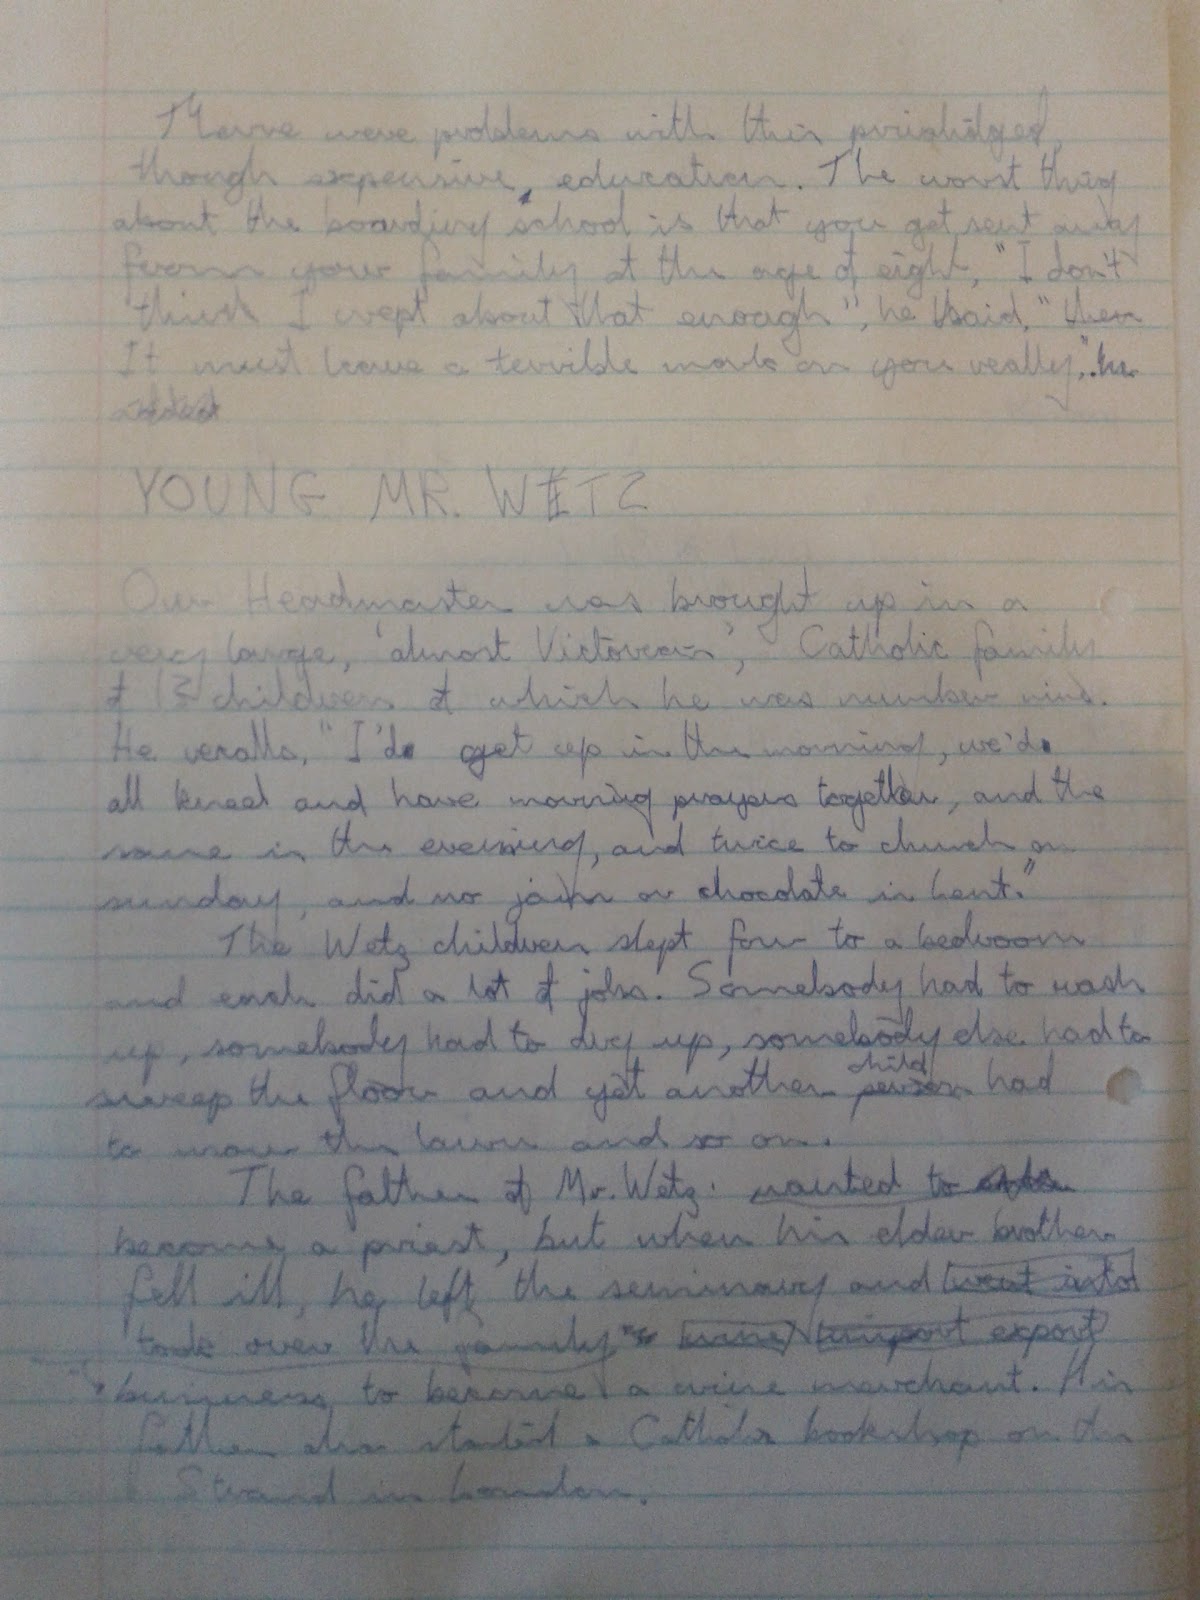 There were problems with this priviledged,
though expensive, education. The worst thing
about the boarding school is that you get sent away
from your family at the age of eight, "I don't
think I wept about that enough", he said, "then
It must leave a terrible mark on you really," he
added
YOUNG MR. WETZ
Our Headmaster was brought up in a
very large, 'almost Victorian', Catholic family
of 13 children of which he was number nine.
He recalls, "I'd get up in the morning, we'd
all kneel and have morning prayers together, and the
same in the evening, and twice to church on
sunday, and no jam or chocolate in Lent."
The Wetz children slept four to a bedroom
and each did a lot of jobs. Somebody had to wash
up, somebody had to dry up, somebody else had to
sweep the floor and yet another child person had
to mow the lawn and so on.
The father of Mr. Wetz wanted to
become a priest, but when his elder brother
fell ill, he left the seminary and went into
took over the family wine import export
business to become a wine merchant. His
father also started a Catholic bookshop on the
Strand in London.